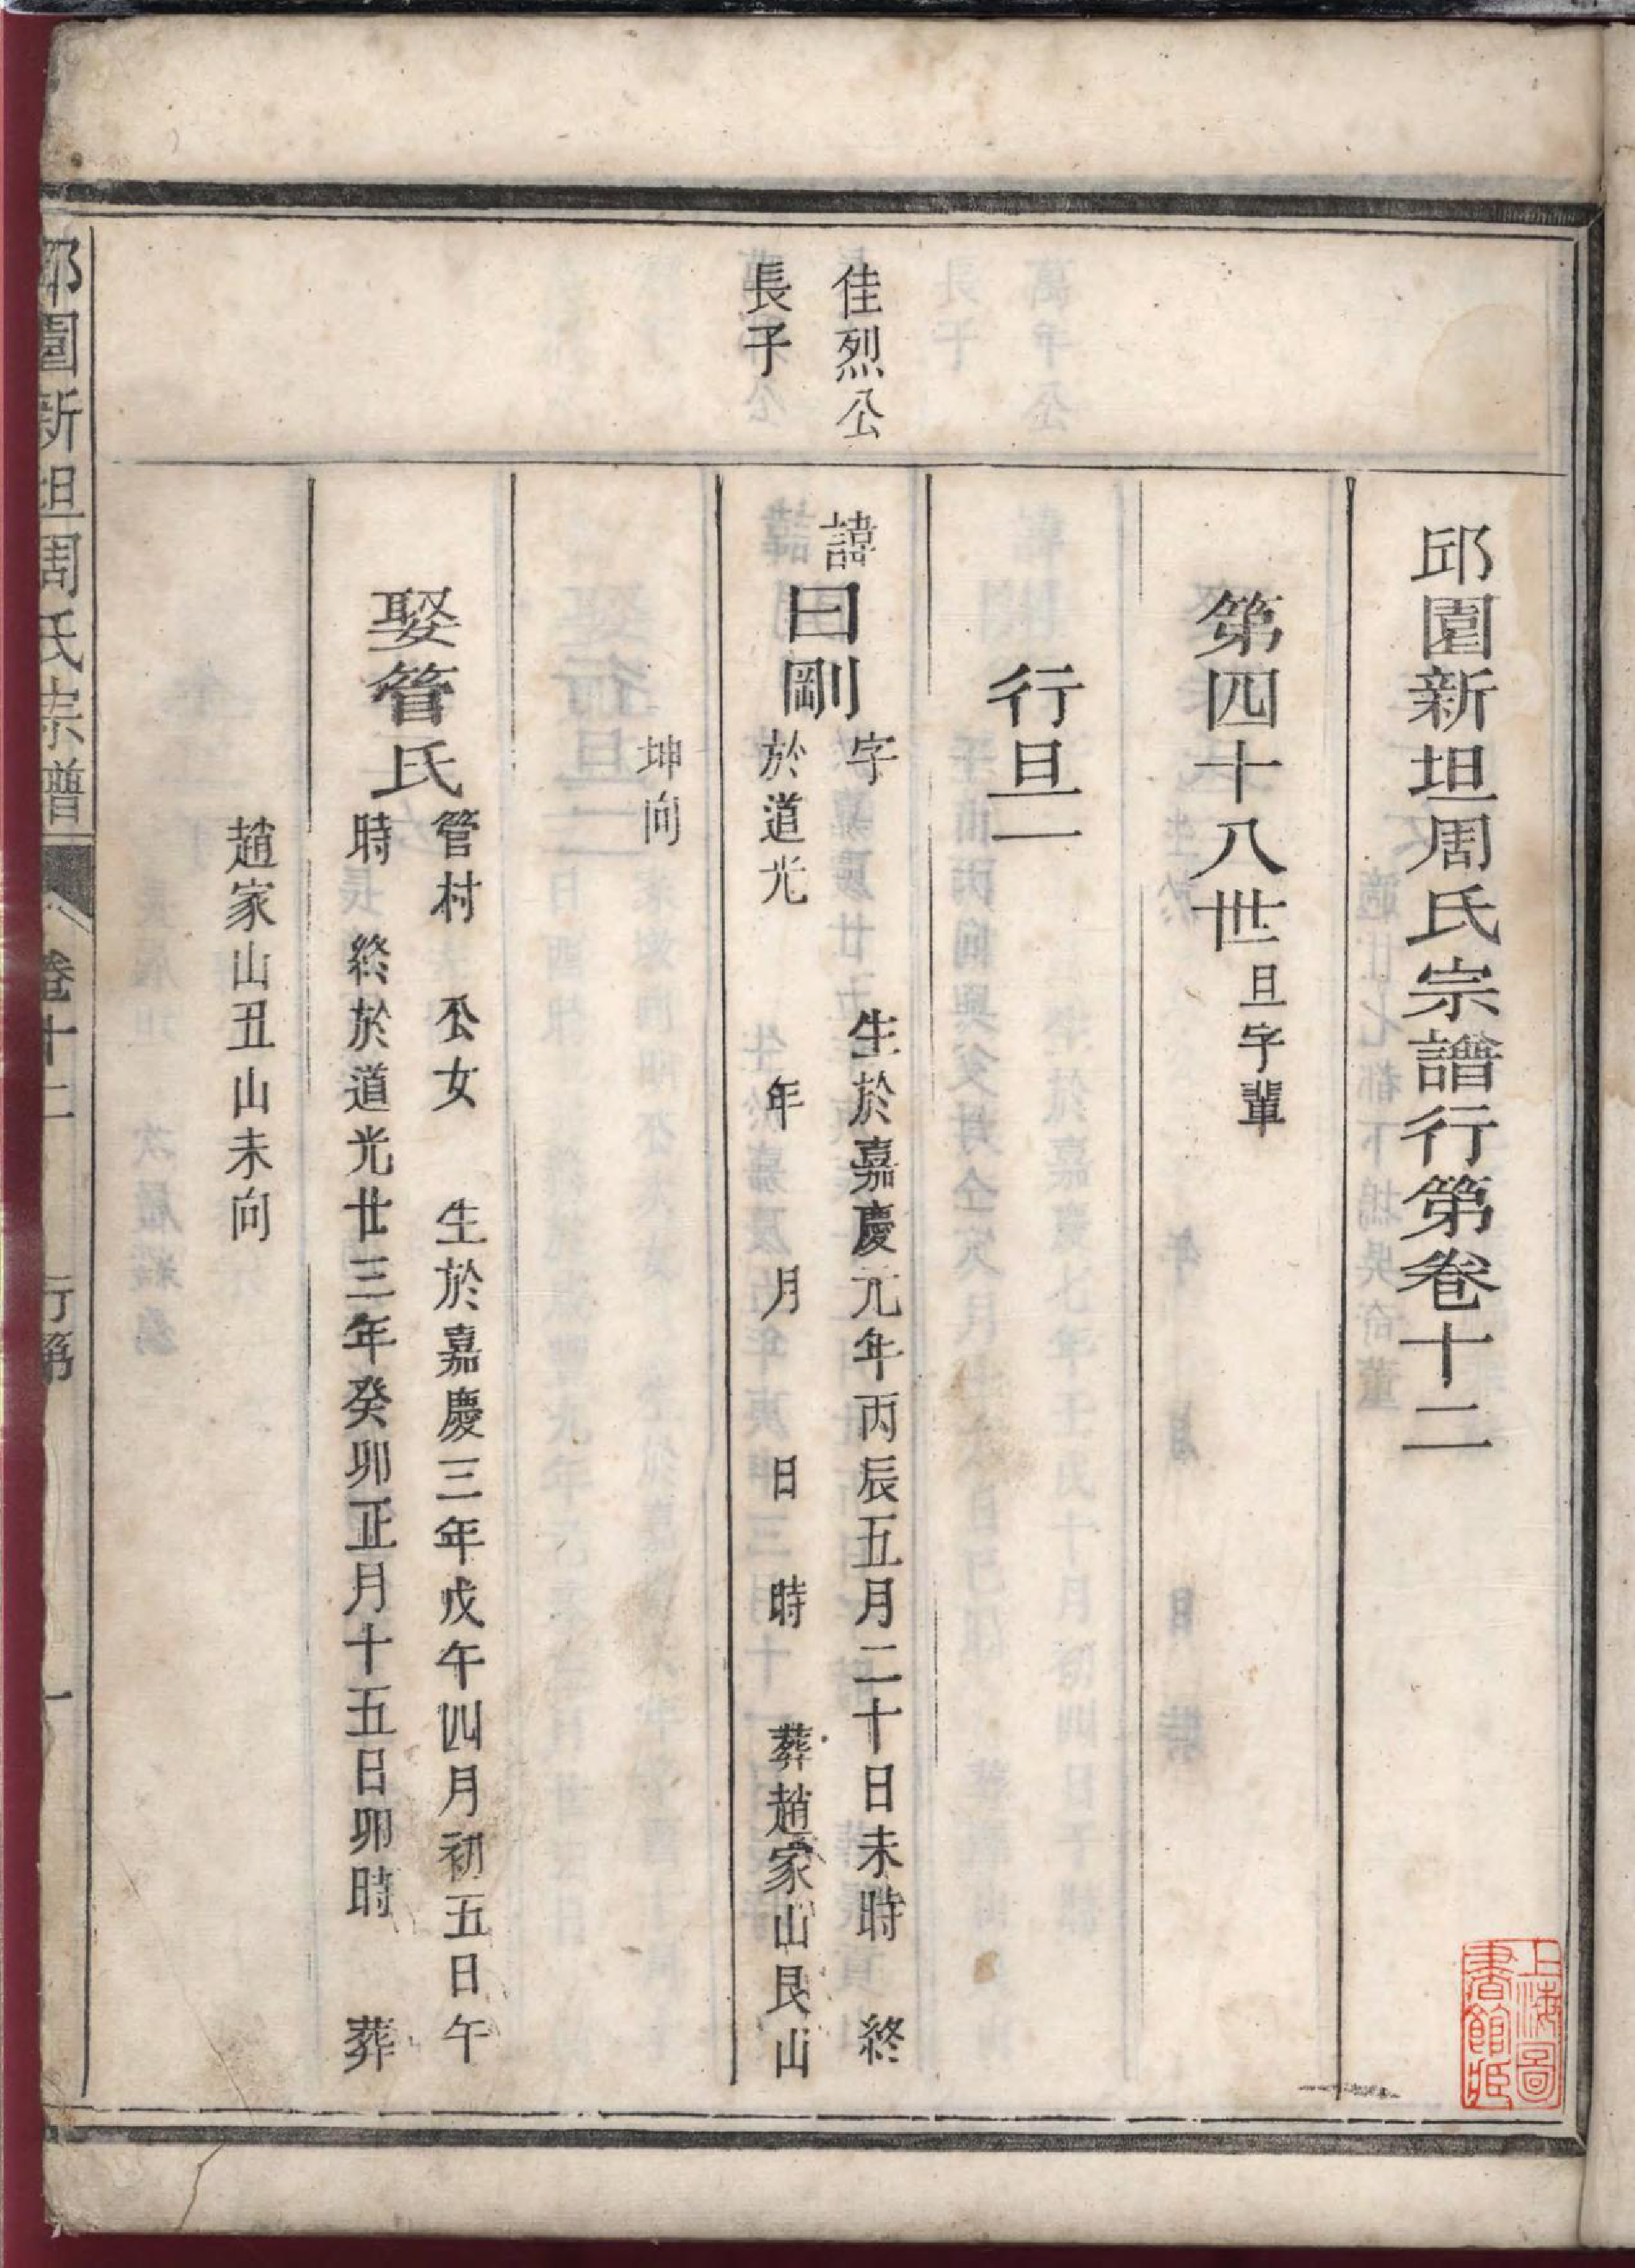 邱園新坦周氏宗譜行第卷十二
第四十八世旦字輩
行旦一
佳烈公
長子
諱曰剛
字　　　生於嘉慶元年丙辰五月二十日未時　終
於道光　　年　　月　　日　時　葬趙家山艮山
坤向
娶管氏
管村　公女　生於嘉慶三年戊午四月初五日午
時　終於道光廿三年癸卯正月十五日卯時　葬
趙家山丑山未向
邱園新坦周氏宗譜
卷十二　行第　一
上海圖
書館藏